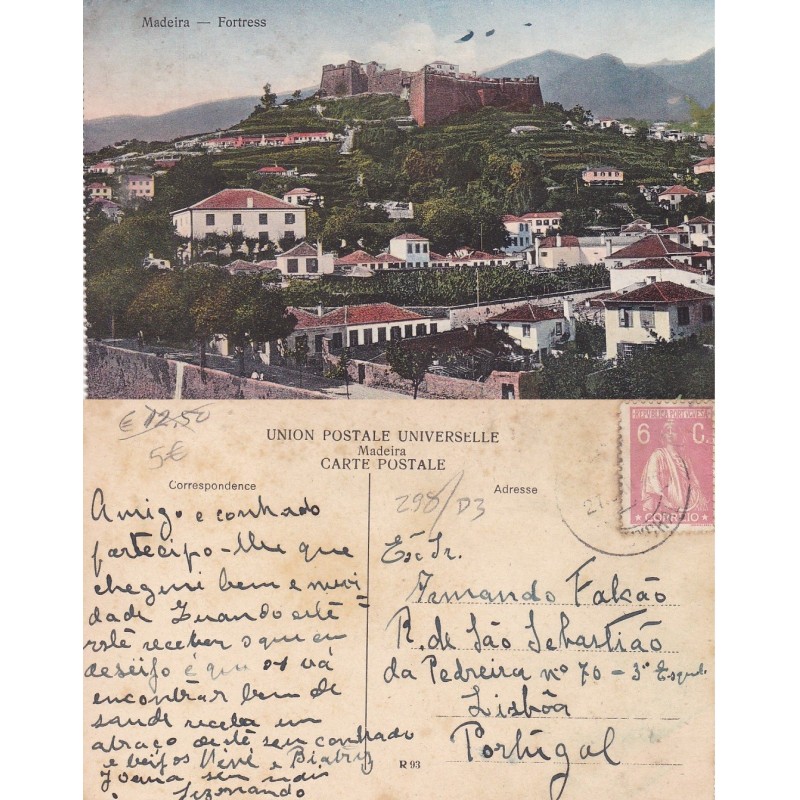 Madeira — Fortress
€ 12,50
5€
UNION POSTALE UNIVERSELLE
Madeira
CARTE POSTALE
Correspondence
Adresse
298/D3
REPUBLICA PORTUGUESA
6 C.
CORREIO
27
Amigo e conhado
partecipo-lhe que
cheguei bem e novi
dade quando este
este receber o que eu
deseijo é que os vá
encontrar bem de
saude receba um
abraço deste seu conhado
e beijos Nené e Biatriz
Joana sem mais
Sezenando
Exº Sr.
Fernando Falcão
R. de São Sebastião
da Pedreira nº 70 - 3º Esqud.
Lisbôa
Portugal
R 93